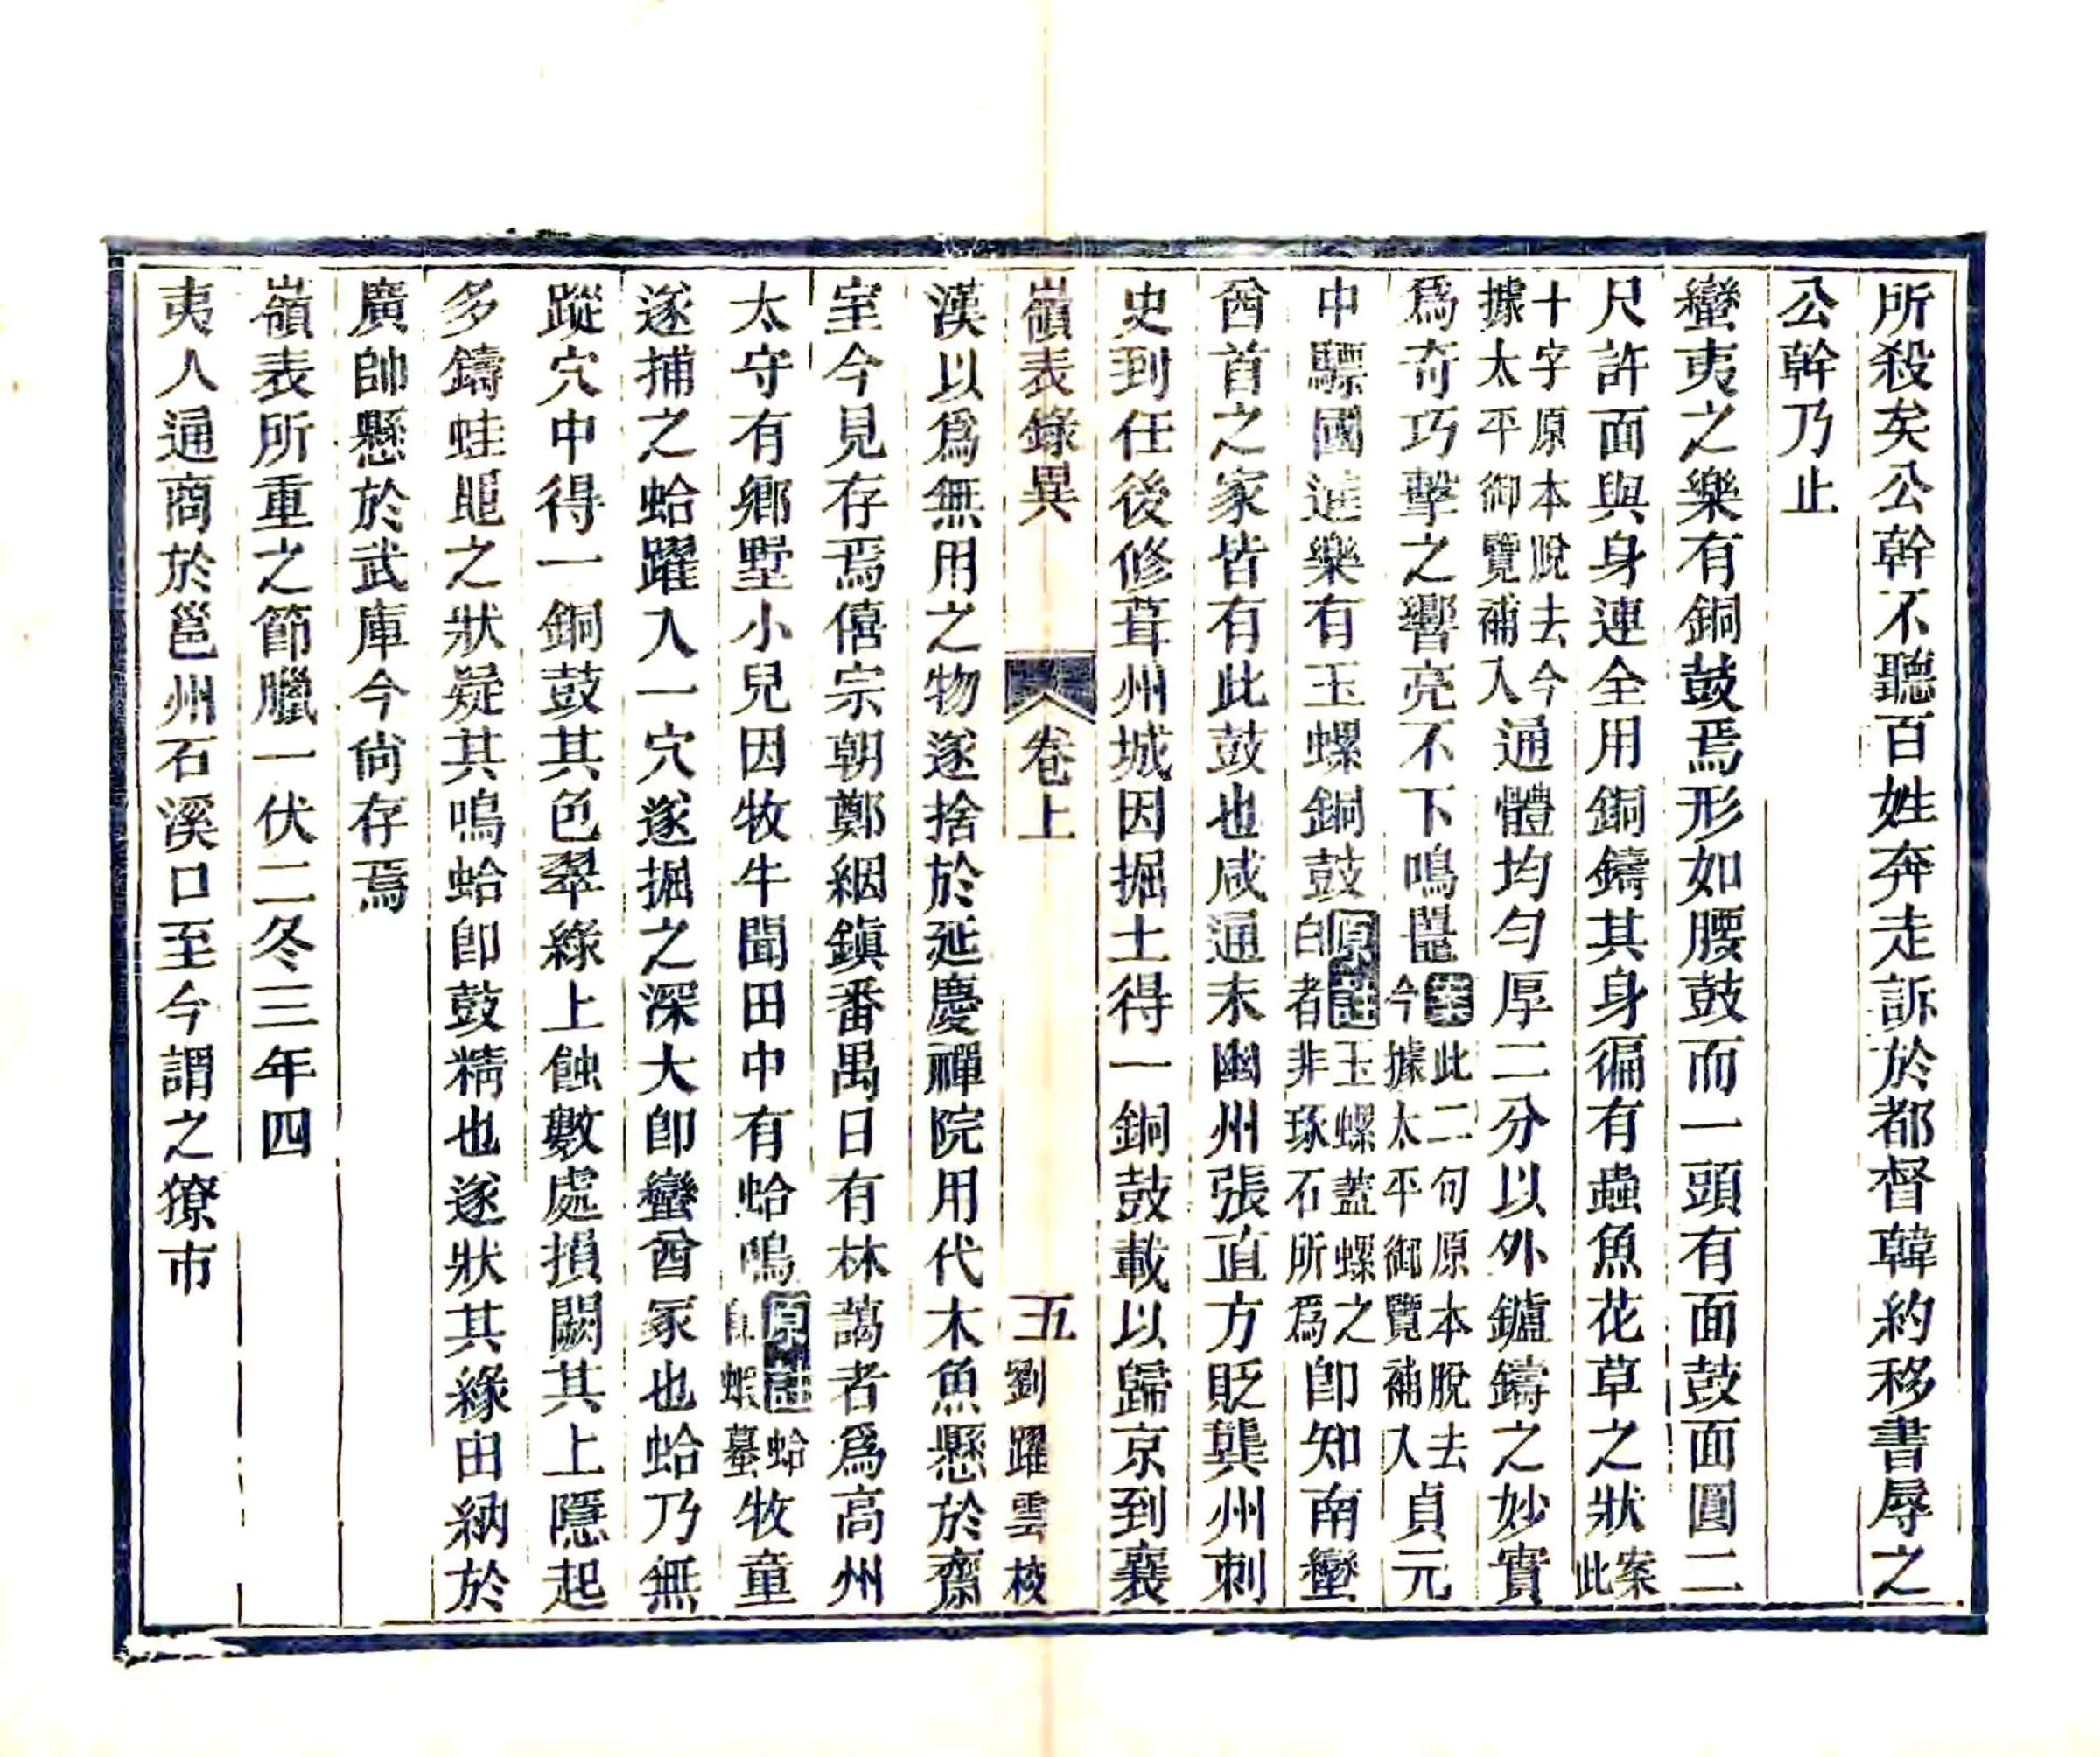 所殺矣公幹不聽百姓奔走訴於都督韓約移書辱之
公幹乃止
蠻夷之樂有銅鼓焉形如腰鼓而一頭有面鼓面圓二
尺許面與身連全用銅鑄其身徧有蟲魚花草之狀案此
十字原本脫去今據太平御覽補入通體均勻厚二分以外鑪鑄之妙實
爲奇巧擊之響亮不下鳴鼉案此二句原本脫去今據太平御覽補入貞元
中驃國進樂有玉螺銅鼓原註玉螺葢螺之白者非琢石所爲卽知南蠻
酋首之家皆有此鼓也咸通末幽州張直方貶龔州刺
史到任後修葺州城因掘土得一銅鼓載以歸京到襄
嶺表錄異 卷上 五 劉躍雲校
漢以爲無用之物遂捨於延慶禪院用代木魚懸於齋
室今見存焉僖宗朝鄭絪鎮番禺日有林藹者爲高州
太守有鄉墅小兒因牧牛聞田中有蛤鳴原註蛤卽蝦蟇牧童
遂捕之蛤躍入一穴遂掘之深大卽蠻酋冢也蛤乃無
蹤穴中得一銅鼓其色翠綠上蝕數處損闕其上隱起
多鑄蛙黽之狀疑其鳴蛤卽鼓精也遂狀其緣由納於
廣帥懸於武庫今尙存焉
嶺表所重之節臘一伏二冬三年四
夷人通商於邕州石溪口至今謂之獠市